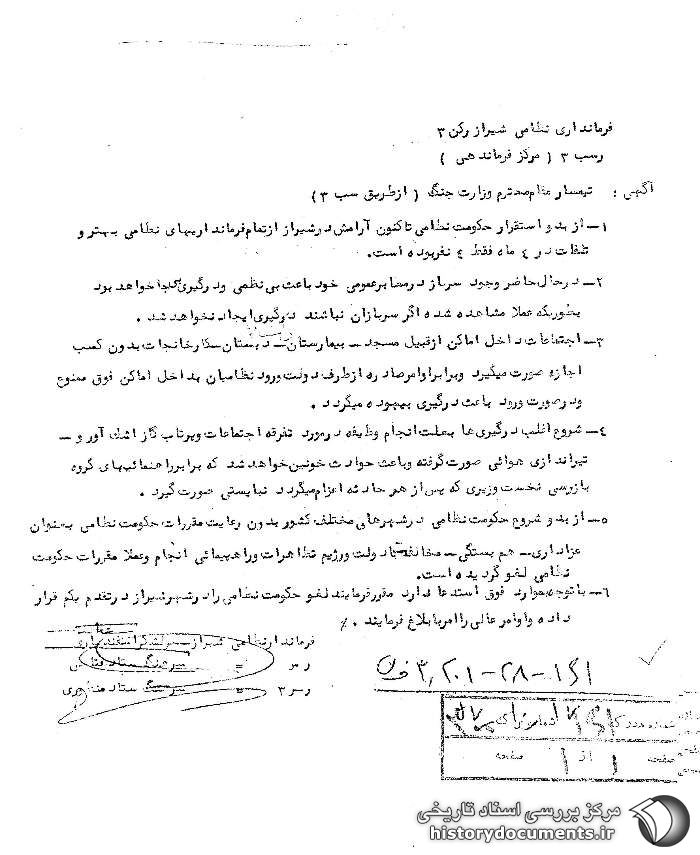 فرمانداری نظامی شیراز رکن ۳
رسب ۳ ( مرکز فرماندهی )
آگهی : تیمسار مقام محترم وزارت جنگ ( از طریق سب ۳ )
۱- از بدو استقرار حکومت نظامی تاکنون آرامش در شیراز از تمام فرمانداریهای نظامی بهتر و
تلفات در ٤ ماه فقط ٤ نفر بوده است.
۲- در حال حاضر وجود سرباز در معابر عمومی خود باعث بی نظمی و درگیری بیجا خواهد بود
بطوریکه عملا مشاهده شده اگر سربازان نباشند درگیری ایجاد نخواهد شد .
۳- اجتماعات داخل اماکن از قبیل مسجد - بیمارستان - دبستان - کارخانجات بدون کسب
اجازه صورت میگیرد و برابر اوامر صادره از طرف دولت ورود نظامیان بداخل اماکن فوق ممنوع
و در صورت ورود باعث درگیری بیهوده میگردد .
٤- شروع اغلب درگیری ها بعلت انجام وظیفه در مورد تفرقه اجتماعات و پرتاب گاز اشک آور و -
تیراندازی هوائی صورت گرفته و باعث حوادث خونین خواهد شد که برابر راهنمائیهای گروه
بازرسی نخست وزیری که پس از هر حادثه اعزام میگردد نبایستی صورت گیرد .
۵- از بدو شروع حکومت نظامی در شهرهای مختلف کشور بدون رعایت مقررات حکومت نظامی بعنوان
عزاداری - هم بستگی - مخالفت با دولت و رژیم تظاهرات و راهپیمائی انجام و عملا مقررات حکومت
نظامی لغو گردیده است.
۶- با توجه بموارد فوق استدعا دارد مقرر فرمایند لغو حکومت نظامی را در شهر شیراز در تقدم یکم قرار
داده و اوامر عالی را امر بابلاغ فرمایند . ٪
فرماندار نظامی شیراز - سرلشگر اسفندیاری
ر س = سرهنگ ستاد
ر س ر ۳ = سرهنگ ستاد
۲۰۱-۲۸-۱۶۱
شماره
صفحه ۱ از ۱ صفحه
مرکز بررسی اسناد تاریخی
historydocuments.ir